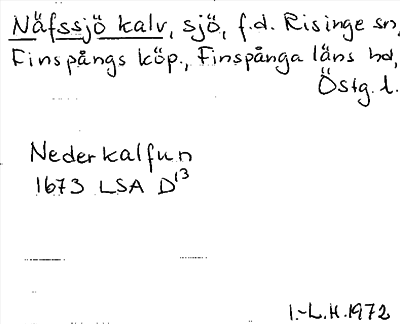 Näfssjö kalv, sjö, f.d. Risinge sn,
Finspångs köp., Finspånga läns hd,
Östg. l.
Nederkalfun
1673 LSA D13
I.-L.H. 1972